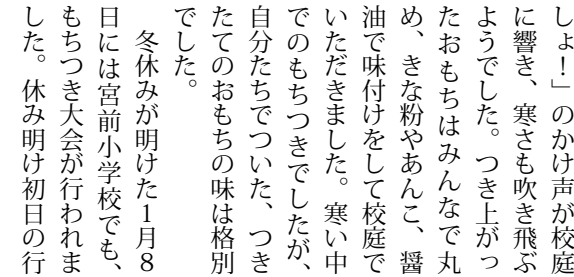 しょ！」のかけ声が校庭
に響き、寒さも吹き飛ぶ
ようでした。つき上がっ
たおもちはみんなで丸
め、きな粉やあんこ、醤
油で味付けをして校庭で
いただきました。寒い中
でのもちつきでしたが、
自分たちでついた、つき
たてのおもちの味は格別
でした。
冬休みが明けた1月8
日には宮前小学校でも、
もちつき大会が行われま
した。休み明け初日の行